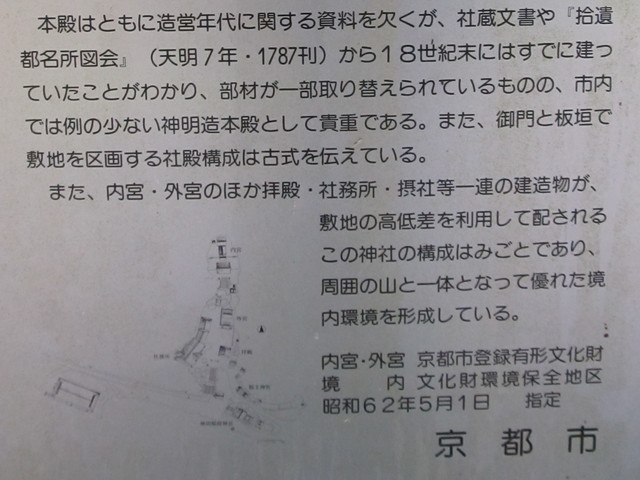 本殿はともに造営年代に関する資料を欠くが、社蔵文書や『拾遺
都名所図会』（天明７年・1787刊）から１８世紀末にはすでに建っ
ていたことがわかり、部材が一部取り替えられているものの、市内
では例の少ない神明造本殿として貴重である。また、御門と板垣で
敷地を区画する社殿構成は古式を伝えている。
また、内宮・外宮のほか拝殿・社務所・摂社等一連の建造物が、
敷地の高低差を利用して配される
この神社の構成はみごとであり、
周囲の山と一体となって優れた境
内環境を形成している。
内宮・外宮 京都市登録有形文化財
境　　内 文化財環境保全地区
昭和６２年５月１日　指定
京都市